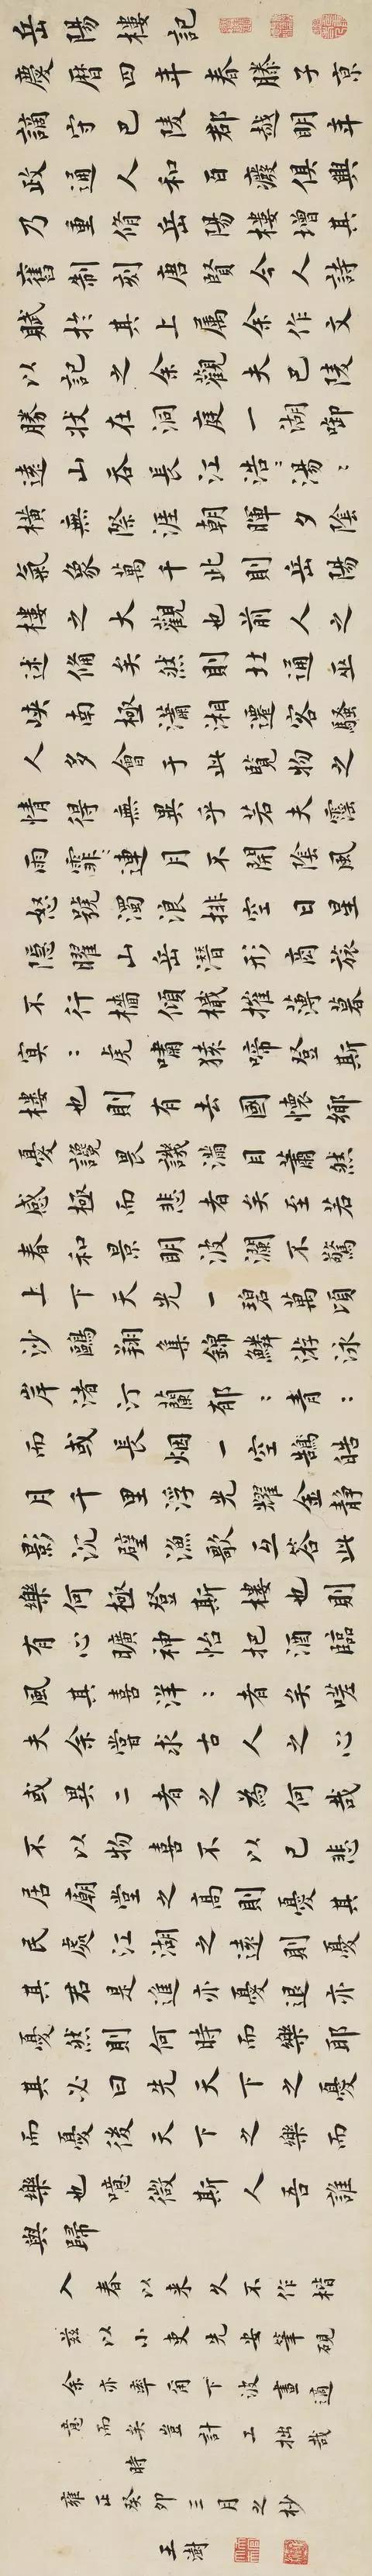 岳陽樓記
慶曆四年春滕子京
謫守巴陵郡越明年
政通人和百癈俱興
乃重脩岳陽樓增其
舊制刻唐賢今人詩
賦於其上属余作文
以記之余觀夫巴陵
勝狀在洞庭一湖啣
遠山吞長江浩〻湯〻
橫無際涯朝暉夕陰
氣象萬千此則岳陽
樓之大觀也前人之
述備矣然則北通巫
峽南極瀟湘遷客騷
人多會于此覽物之
情得無異乎若夫霪
雨霏〻連月不開陰風
怒號濁浪排空日星
隱曜山岳潛形商旅
不行檣傾檝摧薄暮
冥〻虎嘯猿啼登斯
樓也則有去國懷鄉
憂讒畏譏滿目蕭然
感極而悲者矣至若
春和景明波瀾不驚
上下天光一碧萬頃
沙鷗翔集錦鱗游泳
岸渚汀蘭郁〻青〻
而或長烟一空鵠皓
月千里浮光耀金靜
影沉璧漁歌互答此
樂何極登斯樓也則
有心曠神怡把酒臨
風其喜洋〻者矣嗟
夫余嘗求古人之心
或異二者之為何哉
不以物喜不以己悲
居廟堂之高則憂其
民處江湖之遠則憂
其君是進亦憂退亦
憂然則何時而樂耶
其必曰先天下之憂
而憂後天下之樂而
樂也噫微斯人吾誰
與歸
入春以來久不作楷
茲以小吏先安筆硯
余亦率爾下波畫適
意而矣豈計工拙哉
時
雍正癸卯三月之杪
王澍